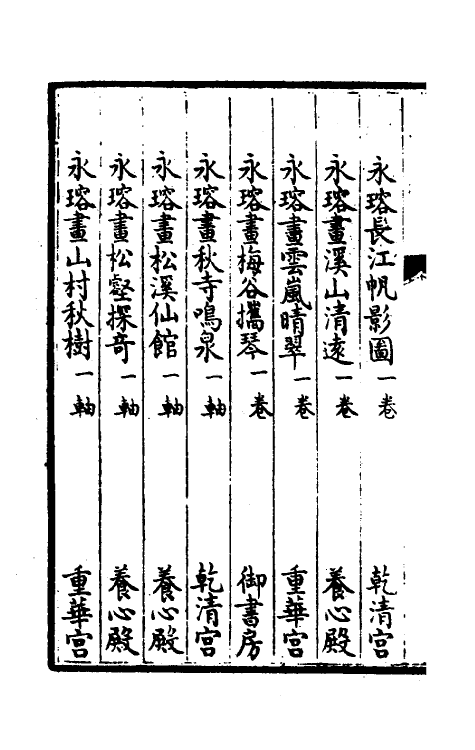 永瑢長江帆影圖一卷 乾清宮
永瑢畫溪山清遠一卷 養心殿
永瑢畫雲嵐晴翠一卷 重華宮
永瑢畫梅谷攜琴一卷 御書房
永瑢畫秋寺鳴泉一軸 乾清宮
永瑢畫松溪仙館一軸 養心殿
永瑢畫松壑探奇一軸 養心殿
永瑢畫山村秋樹一軸 重華宮